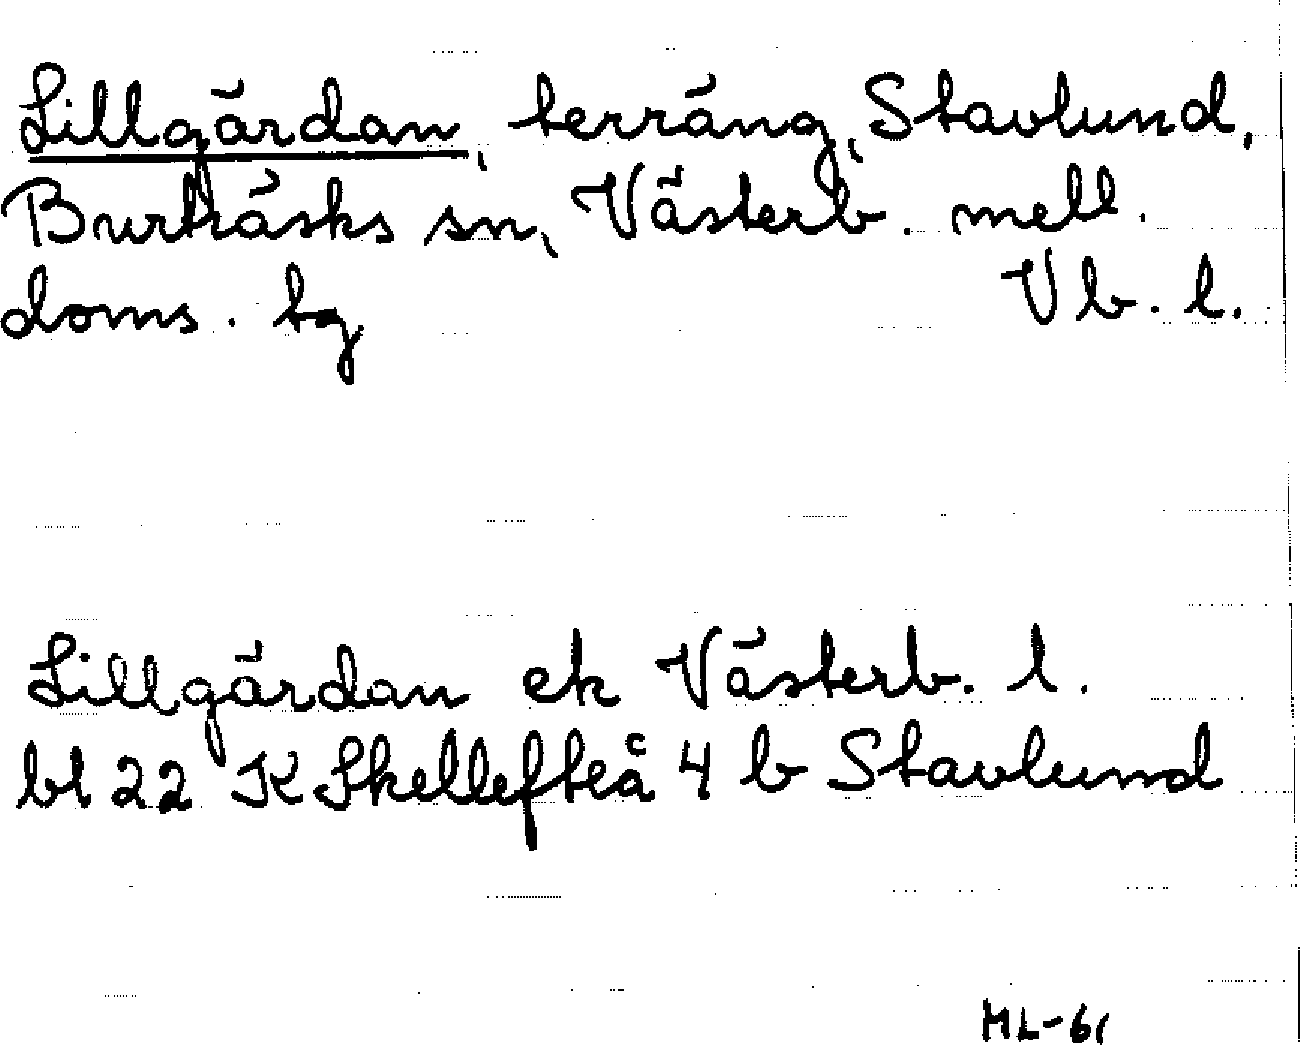 Lillgärdan, terräng, Stavlund,
Burträsks sn, Västerb. mell.
doms. tg Vb. l.
Lillgärdan ek Västerb. l.
bl 22 K Skellefteå 4 b Stavlund
ML-61